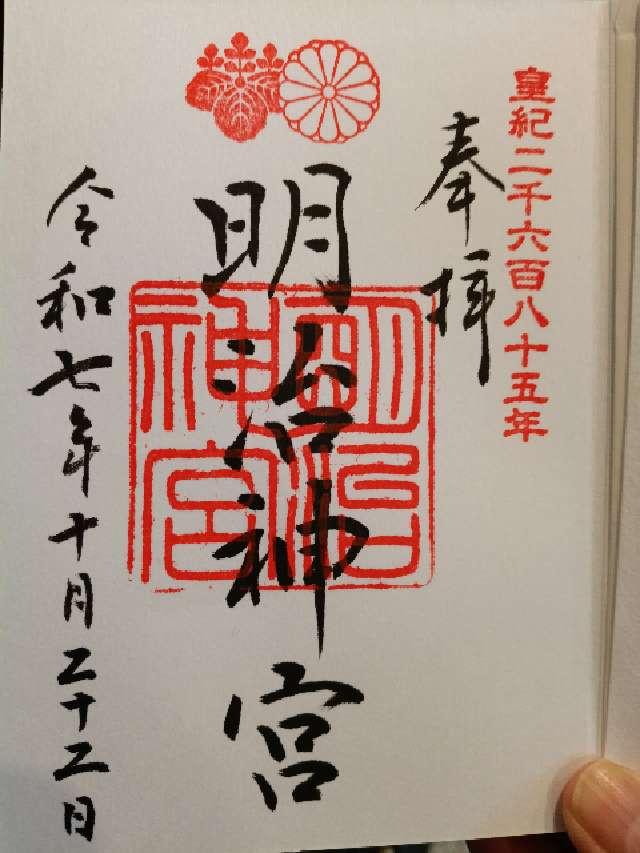 皇紀二千六百八十五年
奉拝
明治神宮
明治神宮
令和七年十月二十二日